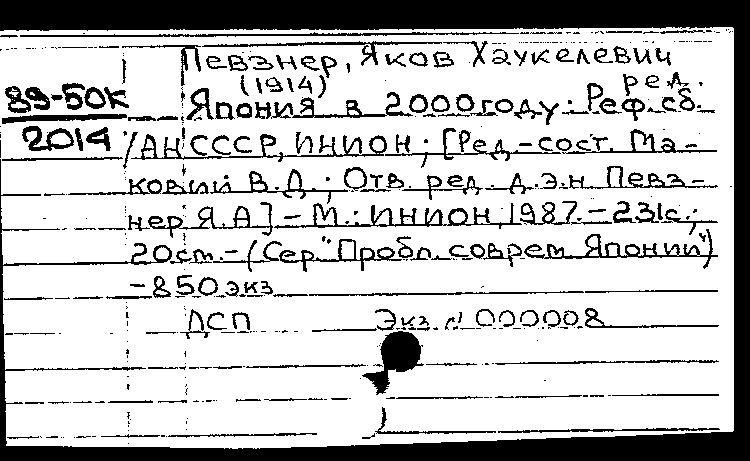 Певзнер, Яков Хаукелевич
(1914) ред.
89-50К
Япония в 2000 году: Реф. сб.
2014
/АН СССР, ИНИОН; [Ред.-сост. Ма-
ковий В.Д.; Отв. ред. д.э.н Певз-
нер Я.А] - М.: ИНИОН, 1987. - 231с.;
20cm. - (Сер. "Пробл. соврем. Японии")
- 850 экз
ДСП Экз. N 000008